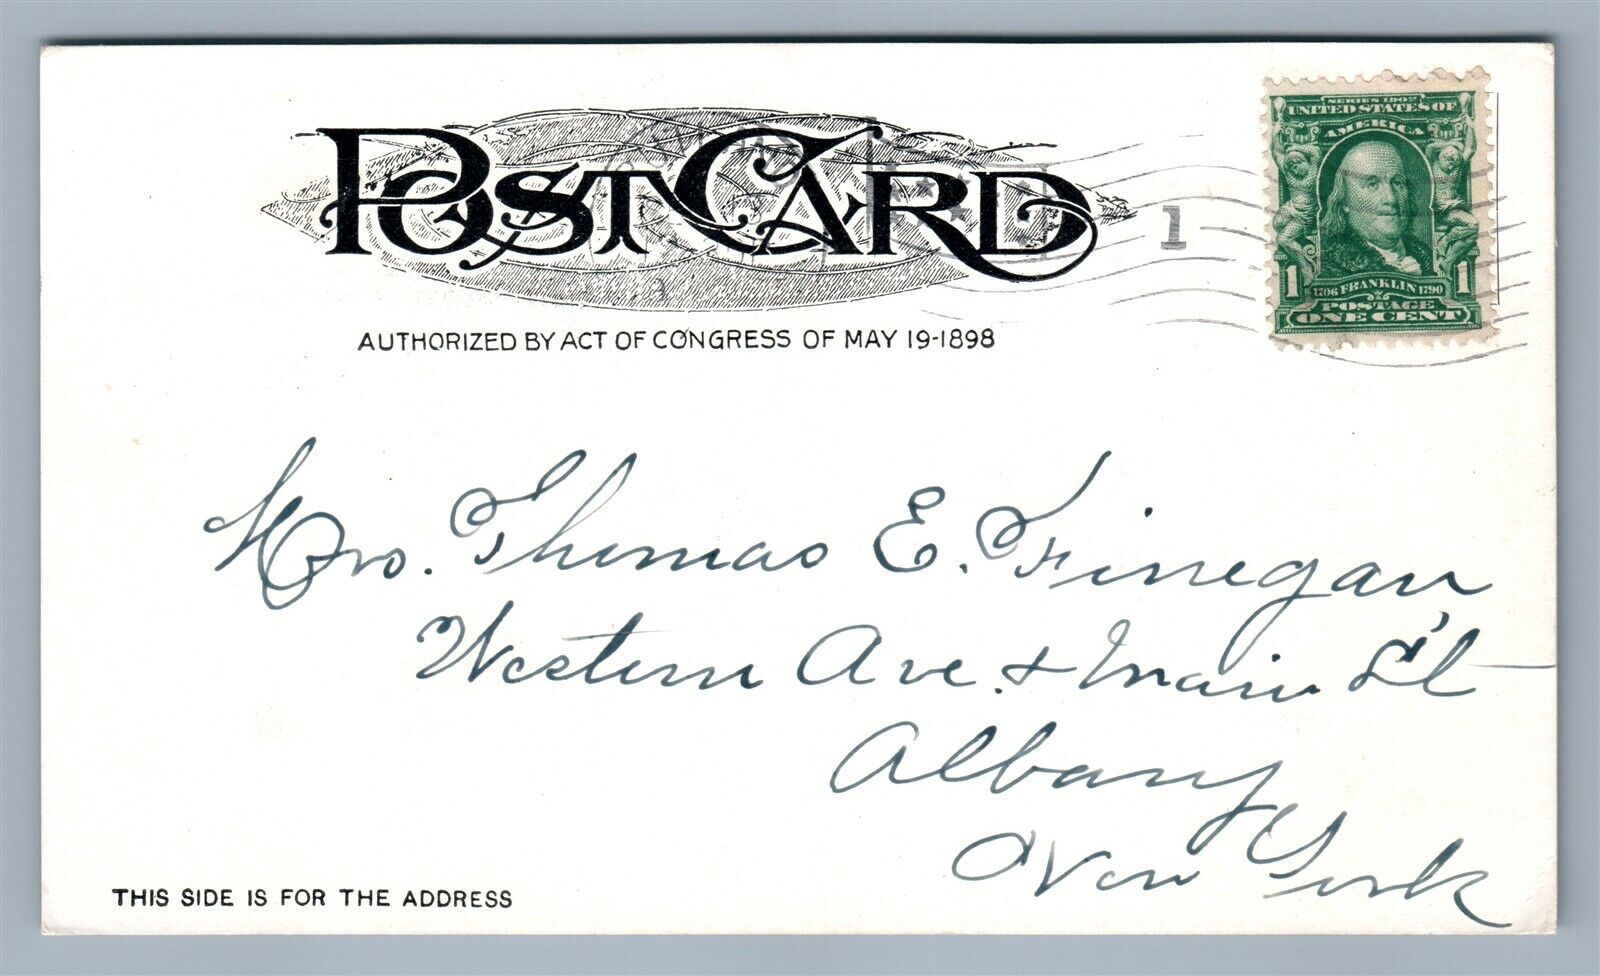 POST CARD
AUTHORIZED BY ACT OF CONGRESS OF MAY 19-1898
SERIES 1902
UNITED STATES OF
AMERICA
1 1706 FRANKLIN 1790 1
POSTAGE
ONE CENT
1
Mrs. Thomas E. Finegan
Western Ave. & Main St
Albany
New York
THIS SIDE IS FOR THE ADDRESS